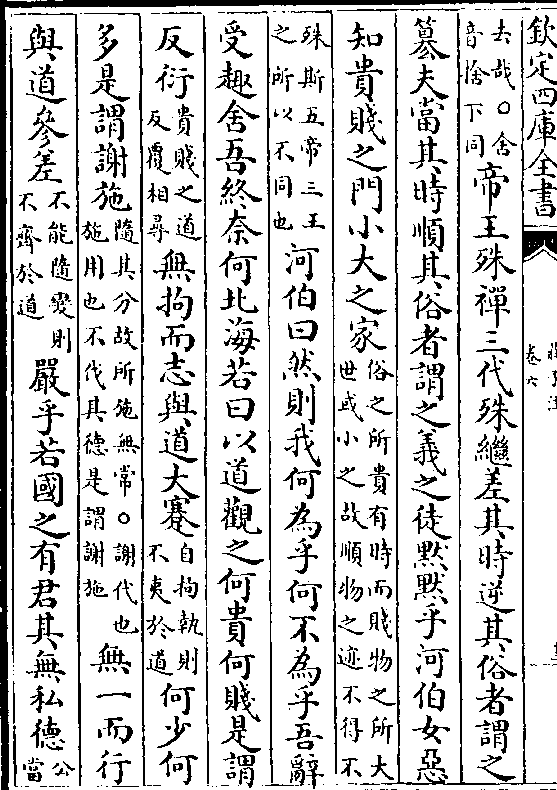 欽定四庫全書
卷六
去哉○舍
音捨下同
帝王殊禪三代殊繼差其時逆其俗者謂之
篡夫當其時順其俗者謂之義之徒黙黙乎河伯女惡
知貴賤之門小大之家
俗之所貴有時而賤物之所大
世或小之故順物之迹不得不
殊斯五帝三王
之所以不同也
河伯曰然則我何為乎何不為乎吾辭
受趣舍吾終奈何北海若曰以道觀之何貴何賤是謂
反衍
貴賤之道
反覆相尋
無拘而志與道大蹇
自拘執則
不夷於道
何少何
多是謂謝施
隨其分故所施無常○謝代也
施用也不代其德是謂謝施
無一而行
與道參差
不能隨變則
不齊於道
嚴乎若國之有君其無私德
公
當